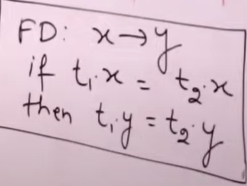 FD: x→y
if t₁.x = t₂.x
then t₁.y = t₂.y